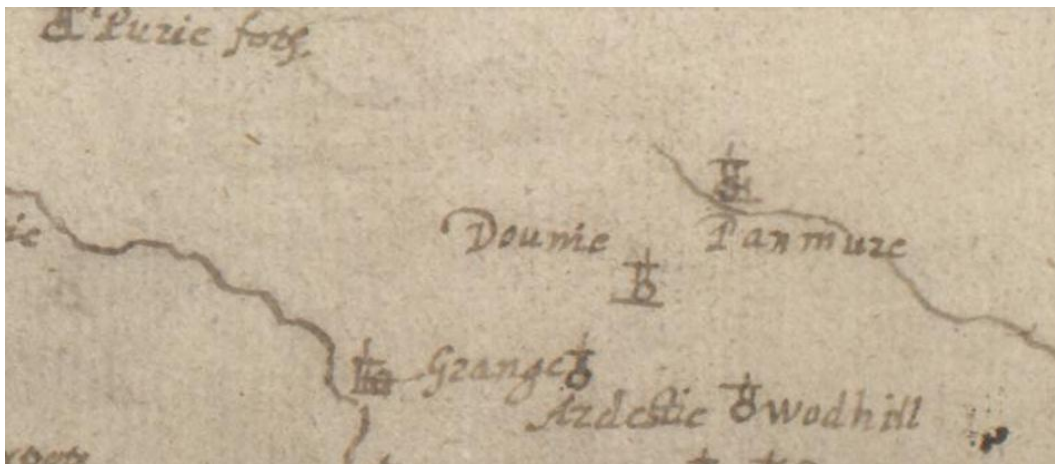 Purie foth.
Dounie
Panmure
ie
Grange
Ardestie
Wodhill